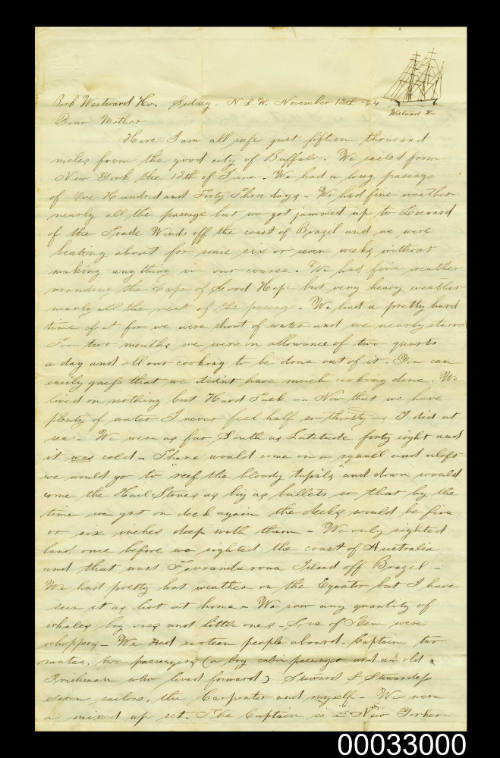 Westward Ho
Bark Westward Ho. Sidney. N.S.W. November 13th
Dear Mother
Here I am all safe just fifteen thousand
miles from the good city of Buffalo. We sailed from
New York the 17th of June. We had a long passage
of One Hundred and Forty Three days. We had fine weather
nearly all the passage but we got jammed up to
of the Trade Winds off the coast of Brazil and we were
beating about for some six or seven weeks without
making anything in our course. We had fine weather
running the Cape of Good Hope but very heavy weather
nearly all the rest of the passage. We had a pretty hard
time of it for we were short of water and we nearly
For two months we were on allowance of two quarts
a day and all our cooking to be done out of it. You can
easily guess that we didnt have much cooking done. We
lived on nothing but Hard Tack. Now that we have
plenty of water I never feel half so thirsty as I did at
sea. We were as far South as Latitude forty eight and
it was cold. There would come on a squall and aloft
we would go to reef the bloody topsails and down would
come the Hail Stones as big as bullets so that by the
time we got on deck again the decks would be five
or six inches deep with them. We only sighted
land once before we sighted the coast of Australia
and that was Island off Brazil
We had pretty hot weather on the Equator but I have
seen it as hot at home. We saw any quantity of
whales big ones and little ones. Some of them were
whoppers. We had people aboard. Captain two
mates, two passengers (a boy cabin passenger and an old
Irishman who lived forward) Steward & Stewardess
sailors, the Carpenter and myself. We were
a mixed up set. The Captain is a New Yorker
00033000